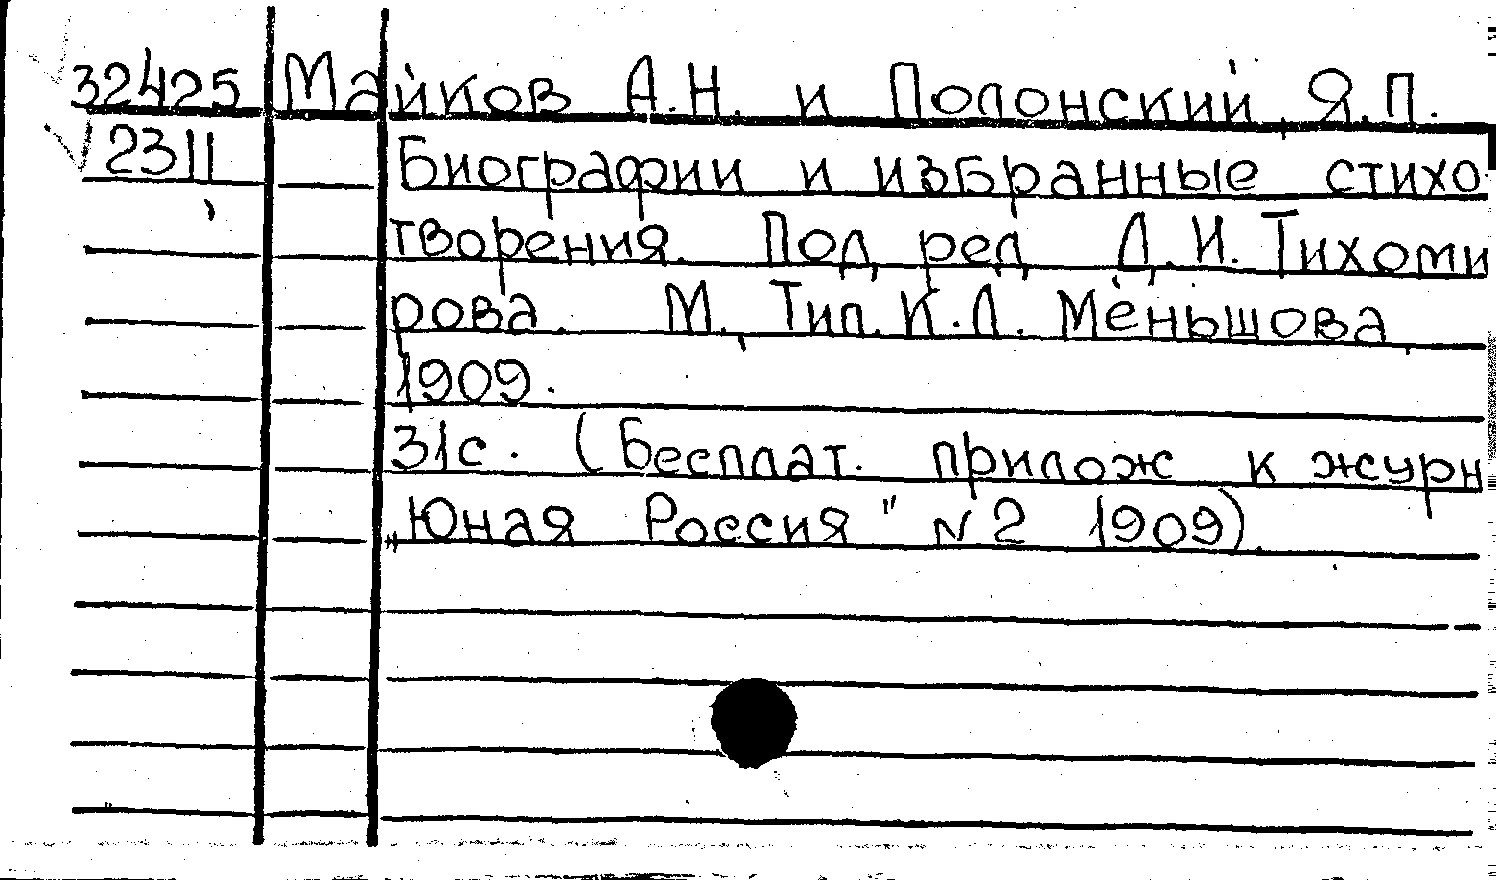 32425 Майков А.Н. и Полонский Я.П.
2311 Биографии и избранные стихо-
творения. Под ред. Д.И. Тихоми
рова. М., Тип. К.Л. Меньшова,
1909.
31с. (Бесплат. прилож к журн
„Юная Россия" N2 1909).